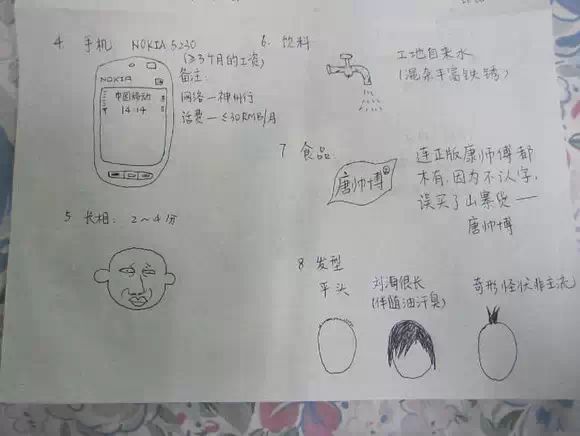 4. 手机 NOKIA 5230
(≥3个月的工资)
备注:
网络—神州行
话费—≤30RMB/月
NOKIA
中国移动
14:14
5 长相: 2~4分
6. 饮料
工地自来水
(混杂丰富铁锈)
7 食品
唐帅博®
连正版康师傅都
木有,因为不认字,
误买了山寨货——
唐帅博
8 发型
平头
刘海很长
(伴随油汗臭)
奇形怪状非主流